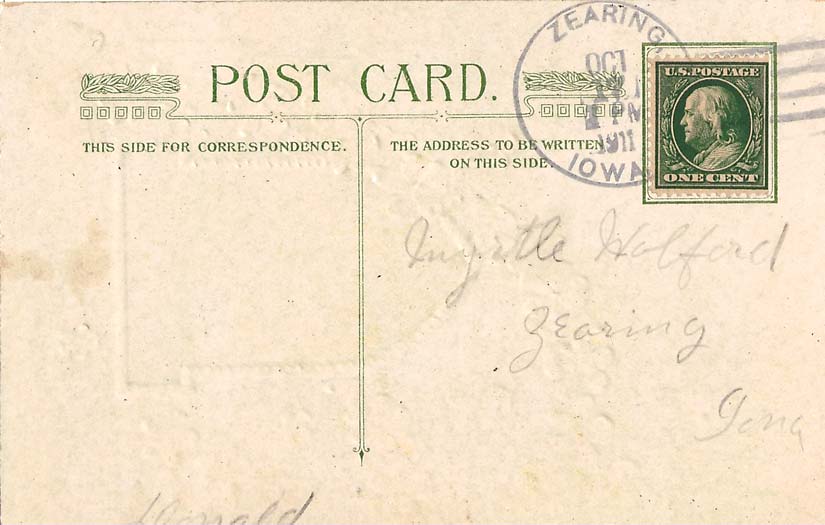 POST CARD.
THIS SIDE FOR CORRESPONDENCE.
THE ADDRESS TO BE WRITTEN
ON THIS SIDE.
ZEARING,
OCT
PM
1911
IOWA
U.S. POSTAGE
ONE CENT
Myrtle Holford
Zearing
Iowa
Donald